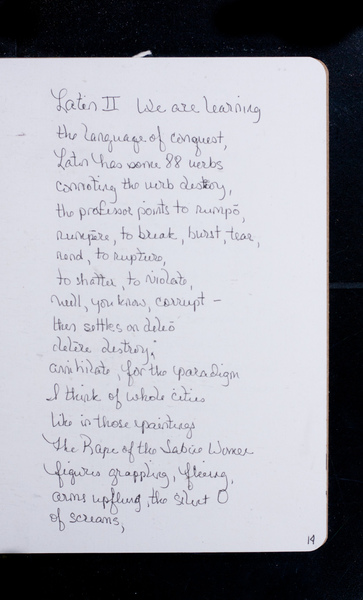 Latin II We are learning
the language of conquest,
Latin has some 88 verbs
connoting the verb destroy,
the professor points to rumpō,
rumpere, to break, burst, tear,
rend, to rupture,
to shatter, to violate,
well, you know, corrupt –
then settles on dēleō
dēlēre destroy;
annihilate, for the paradigm
I think of whole cities
like in those paintings
The Rape of the Sabine Women
figures grappling, fleeing,
arms upflung, the silent O
of screams,
19